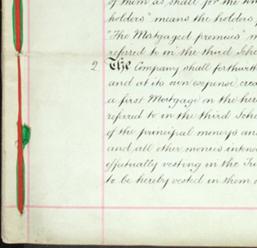 of them as shall for the
holders" means the holders
"The Mortgaged premises"
referred to in the third Sche
2 The Company shall forthwith
and at its own expense crea
a first Mortgage on the here
referred to in the third Sche
of the principal moneys and
and all other moneys intend
effectually vesting in the Tru
to be hereby vested in them